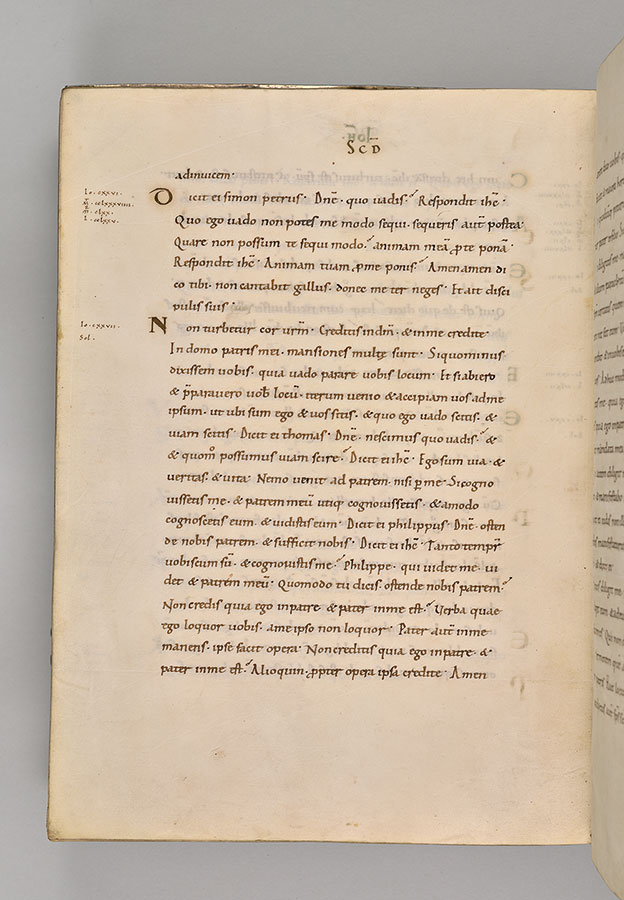 SCD
adinuicem·
Io. cxxvi.
Dicit ei simon petrus· Dnē· quo uadis· Respondit ihc̄·
Quo ego uado non potes me modo sequi· sequeris aut̄ postea·
Quare non possum te sequi modo· animam meā ꝓ te ponā·
Respondit ihc̄· Animam tuam ꝓ me ponis· Amen amen di
co tibi· non cantabit gallus· donec me ter neges· Et ait disci
pulis suis·
Io. cxxvii.
Sol.
Non turbetur cor urm̄· Creditis in dm̄· & in me credite·
In domo patris mei· mansiones multę sunt· Si quo minus
dixissem uobis· quia uado parare uobis locum· Et si abiero
& p̄parauero uob̄ locū· iterum uenio & accipiam uos ad me
ipsum· ut ubi sum ego & uos sitis· & quo ego uado scitis· &
uiam scitis· Dicit ei thomas· Dnē· nescimus quo uadis· &
& quom̊ possumus uiam scire· Dicit ei ihc̄· Ego sum uia· &
ueritas· & uita· Nemo uenit ad patrem· nisi ꝑ me· Si cogno
uissetis me· & patrem meū utiq; cognouissetis· & amodo
cognoscetis eum· & uidistis eum· Dicit ei philippus· Dnē· osten
de nobis patrem· & sufficit nobis· Dicit ei ihc̄· Tanto tempr̄
uobiscum sū· & cognouistis me· Philippe· qui uidet me· ui
det & patrem meū· Quomodo tu dicis· ostende nobis patrem·
Non credis quia ego in patre & pater in me est̄· Verba quae
ego loquor uobis· a me ipso non loquor· Pater aut̄ in me
manens· ipse facit opera· Non creditis quia ego in patre· &
pater in me est̄· Alioquin· ꝓpter opera ipsa credite· Amen